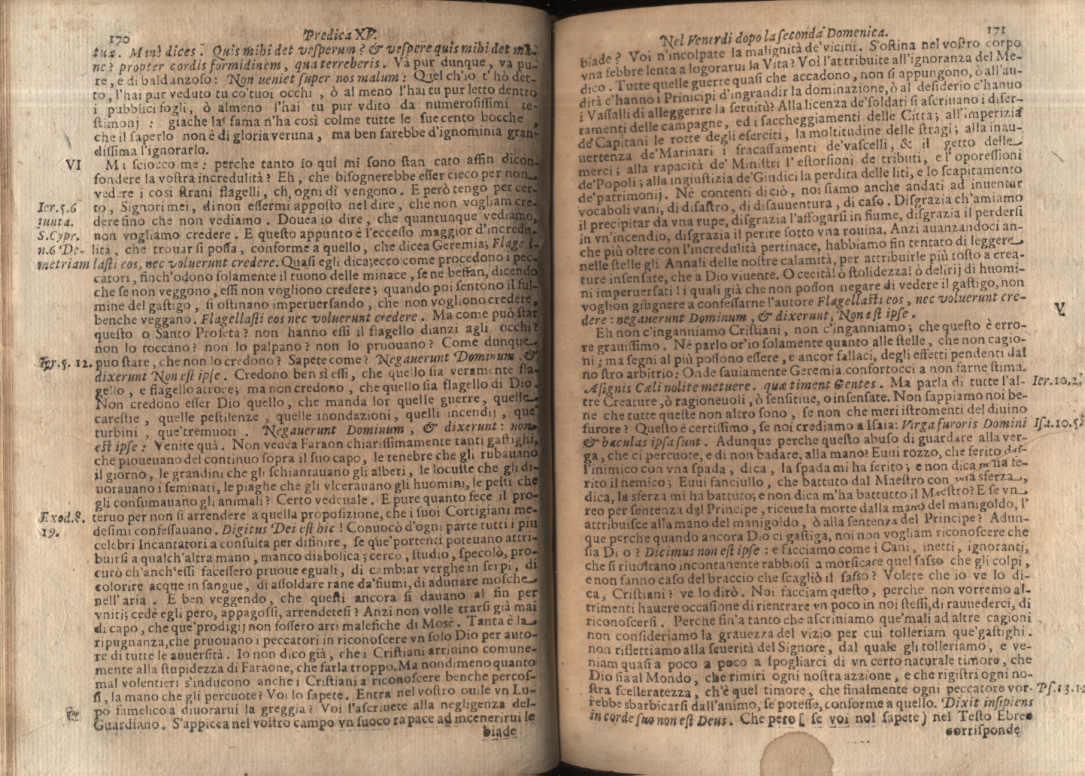 170 Predica XV.
tuæ. Minè dices. Quis mihi det vesperum? & vespere quis mihi det ma-
ne? propter cordis formidinem, qua terreberis. Va pur dunque, va pu-
re, e dì baldanzoso: Non veniet super nos malum: Quel ch'io t'hò det-
to, l'hai pur veduto tu co'tuoi occhi, ò al meno l'hai tu pur letto dentro
i pubblici fogli, ò almeno l'hai tu pur vdito da numerosissimi te-
stimonj: giache la fama n'ha così colme tutte le sue cento bocche,
che il saperlo non è di gloria veruna, ma ben sarebbe d'ignominia gran-
dissima l'ignorarlo.
VI Mi sciocco me: perche tanto io quì mi sono stan cato affin di con-
fondere la vostra incredulità? Eh, che bisognerebbe esser cieco per non
vedere i così strani flagelli, ch, ogni dì vengono. E però tengo per cer-
Ier. 5.6 to, Signori mei, di non essermi apposto nel dire, che non vogliam cre-
iunta. dere sino che non vediamo. Douea io dire, che quantunque vediamo,
S.Cypr. non vogliamo credere. E questo appunto è l'eccesso maggior d'incredu-
n.6 De- lità, che trouar si possa, conforme a quello, che dicea Geremia; Flagel-
metriam lasti eos, nec voluerunt credere. Quasi egli dica; ecco come procedono i pec-
catori, finch'odono solamente il tuono delle minace, se ne beffan, dicendo
che se non veggono, essi non vogliono credere; quando poi sentono il ful-
mine del gastigo, si ostinano imperuersando, che non vogliono credere,
benche veggano. Flagellasti eos nec voluerunt credere. Ma come può star
questo o Santo Profeta? non hanno essi il flagello dianzi agli occhi?
non lo toccano? non lo palpano? non lo pruouano? Come dunque
Ier. 5. 12. può stare, che non lo credono? Sapete come? Negauerunt Dominum, &
dixerunt Non est ipse. Credono ben sì essi, che quello sia veramente fla-
gello, e flagello atroce; ma non credono, che quello sia flagello di Dio.
Non credono esser Dio quello, che manda lor quelle guerre, quelle
carestie, quelle pestilenze, quelle inondazioni, quelli incendij, que'
turbini, que'tremuoti. Negauerunt Dominum, & dixerunt: non
est ipse: Venite quà. Non vedea Faraon chiarissimamente tanti gastighi,
che pioueuano del continuo sopra il suo capo, le tenebre che gli rubauano
il giorno, le grandini che gli schiantauano gli alberi, le locuste che gli di-
uorauano i seminati, le piaghe che gli vlcerauano gli huomini, le pesti che
gli consumauano gli animali? Certo vedeuale. E pure quanto fece il pro-
Exod.8. teruo per non si arrendere a quella proposizione, che i suoi Cortigiani me-
19. desimi confessauano. Digitus Dei est hic! Conuocò d'ogni parte tutti i più
celebri Incantatori a consulta per disinire, se que'portenti poteuano attri-
buirsi a qualch'altra mano, manco diabolica; cercò, studiò, specolò, pro-
curò ch'anch'essi facessero pruoue eguali, di cambiar verghe in serpi, di
colorire acque in sangue, di assoldare rane da'fiumi, di adunare mosche
nell'aria. E ben veggendo, che questi ancora si dauano al fin per
vniti; cedè egli pero, appagossi, arrendetesi? Anzi non volle trarsi già mai
di capo, che que'prodigij non fossero arti malefiche di Mosè. Tanta è la
ripugnanza, che pruouano i peccatori in riconoscere vn solo Dio per auto-
re di tutte le auuersità. Io non dico già, che i Cristiani arriuino comune-
mente alla stupidezza di Faraone, che sarla troppo. Ma nondimeno quanto
mal volentieri s'inducono anche i Cristiani a riconoscere benche percos-
si, la mano che gli percuote? Voi lo sapete. Entra nel vostro ouile vn Lu-
po famelico a diuorarui la greggia? Voi l'ascriuete alla negligenza del
Guardiano. S'appicca nel vostro campo vn fuoco rapace ad incenerirui le
biade
Nel Venerdì dopo la seconda Domenica. 171
biade? Voi n'incolpate la malignità de'vicini. S'ostina nel vostro corpo
vna febbre lenta a logorarui la Vita? Voi l'attribuite all'ignoranza del Me-
dico. Tutte quelle guerre quasi che accadono, non si appungono, ò all'au-
dità c'hanno i Principi d'ingrandir la dominazione, ò al desiderio c'hanuo
i Vassalli di alleggerire la seruitù? Alla licenza de'soldati si ascriuano i diser-
tamenti delle campagne, ed i saccheggiamenti delle Città; all'imperizia
de' Capitani le rotte degli eserciti, la moltitudine delle stragi; alla inau-
uertenza de'Marinari i fracassamenti de'vascelli, & il getto delle
merci; alla rapacità de' Ministri l'estorsioni de tributi, e l'oporessioni
de'Popoli; alla ingiustizia de'Giudici la perdita delle liti, e lo scapitamento
de'patrimonj. Nè contenti di ciò, noi siamo anche andati ad inuentar
vocaboli vani, di disastro, di disauuentura, di caso. Disgrazia ch'amiamo
il precipitar da vna rupe, disgrazia l'affogarsi in fiume, disgrazia il perdersi
in vn'incendio, disgrazia il perire sotto vna rouina. Anzi auanzandoci an-
che più oltre con l'incredulità pertinace, habbiamo fin tentato di leggere
nelle stelle gli Annali delle nostre calamità, per attribuirle più tosto a crea-
ture insensate, che a Dio viuente. O cecità! ò stolidezza! ò delirij di huomi-
ni imperuersati! i quali già che non posson negare di vedere il gastigo, non
voglion giugnere a confessarne l'autore Flagellasti eos, nec voluerunt cre-
dere: negauerunt Dominum, & dixerunt, Non est ipse. V.
Eh non c'inganniamo Cristiani, non c'inganniamo; che questo è erro-
re grauissimo. Nè parlo or'io solamente quanto alle stelle, che non cagio-
ni; ma segni al più possono essere, e ancor fallaci, degli effetti pendenti dal
no stro arbitrio: Onde sauiamente Geremia confortocci a non farne stima.
Asignis Cæli nolite metuere. quæ timent Gentes. Ma parla di tutte l'al- Ier. 10.2,
tre Creature, ò ragioneuoli, ò sensitiue, o insensate. Non sappiamo noi be-
ne che tutte queste non altro sono, se non che meri istromenti del diuino
furore? Questo è certissimo, se noi crediamo a Isaia: Virga furoris Domini Isa.10.5.
& baculas ipsa sunt. Adunque perche questo abuso di guardare alla ver-
ga, che ci percuote, e di non badare, alla mano? Euui rozzo, che ferito dal-
l'inimico con vna spada, dica, la spada mi ha ferito; e non dica m'ha fe-
rito il nemico; Euui fanciullo, che battuto dal Maestro con vna sferza,
dica, la sferza mi ha battuto; e non dica m'ha battutto il Maestro? E se vn
reo per sentenza dal Principe, riceue la morte dalla mano del manigoldo, l'
attribuisce alla mano del manigoldo, ò alla sentenza del Principe? Adun-
que perche quando ancora Dio ci gastiga, noi non vogliam riconoscere che
sia Di o? Dicimus non est ipse: e facciamo come i Cani, inetti, ignoranti,
che si riuoltano incontanente rabbiosi a morsicare quel sasso che gli colpì,
e non fanno caso del braccio che scagliò il sasso? Volete che io ve lo di-
ca, Cristiani? ve lo dirò. Noi facciam questo, perche non vorremo al-
trimenti hauere occasione di rientrare vn poco in noi stessi, di rauuederci, di
riconoscersi. Perche fin'a tanto che ascriniamo que'mali ad altre cagioni
non consideriamo la grauezza del vizio per cui tolleriam que'gastighi.
non riflettiamo alla seuerità del Signore, dal quale gli tolleriamo, e ve-
niam quasi a poco a poco a spogliarci di vn certo naturale timore, che
Dio sia al Mondo, che rimiri ogni nostra azzione, e che rigistri ogni no-
stra scelleratezza, ch'è quel timore, che finalmente ogni peccatore vor- Ps.13.1.
rebbe sbarbicarsi dall'animo, se potesse, conforme a quello. Dixit insipiens
in corde suo non est Deus. Che pero [ se voi nol sapete) nel Testo Ebreo
corrisponde